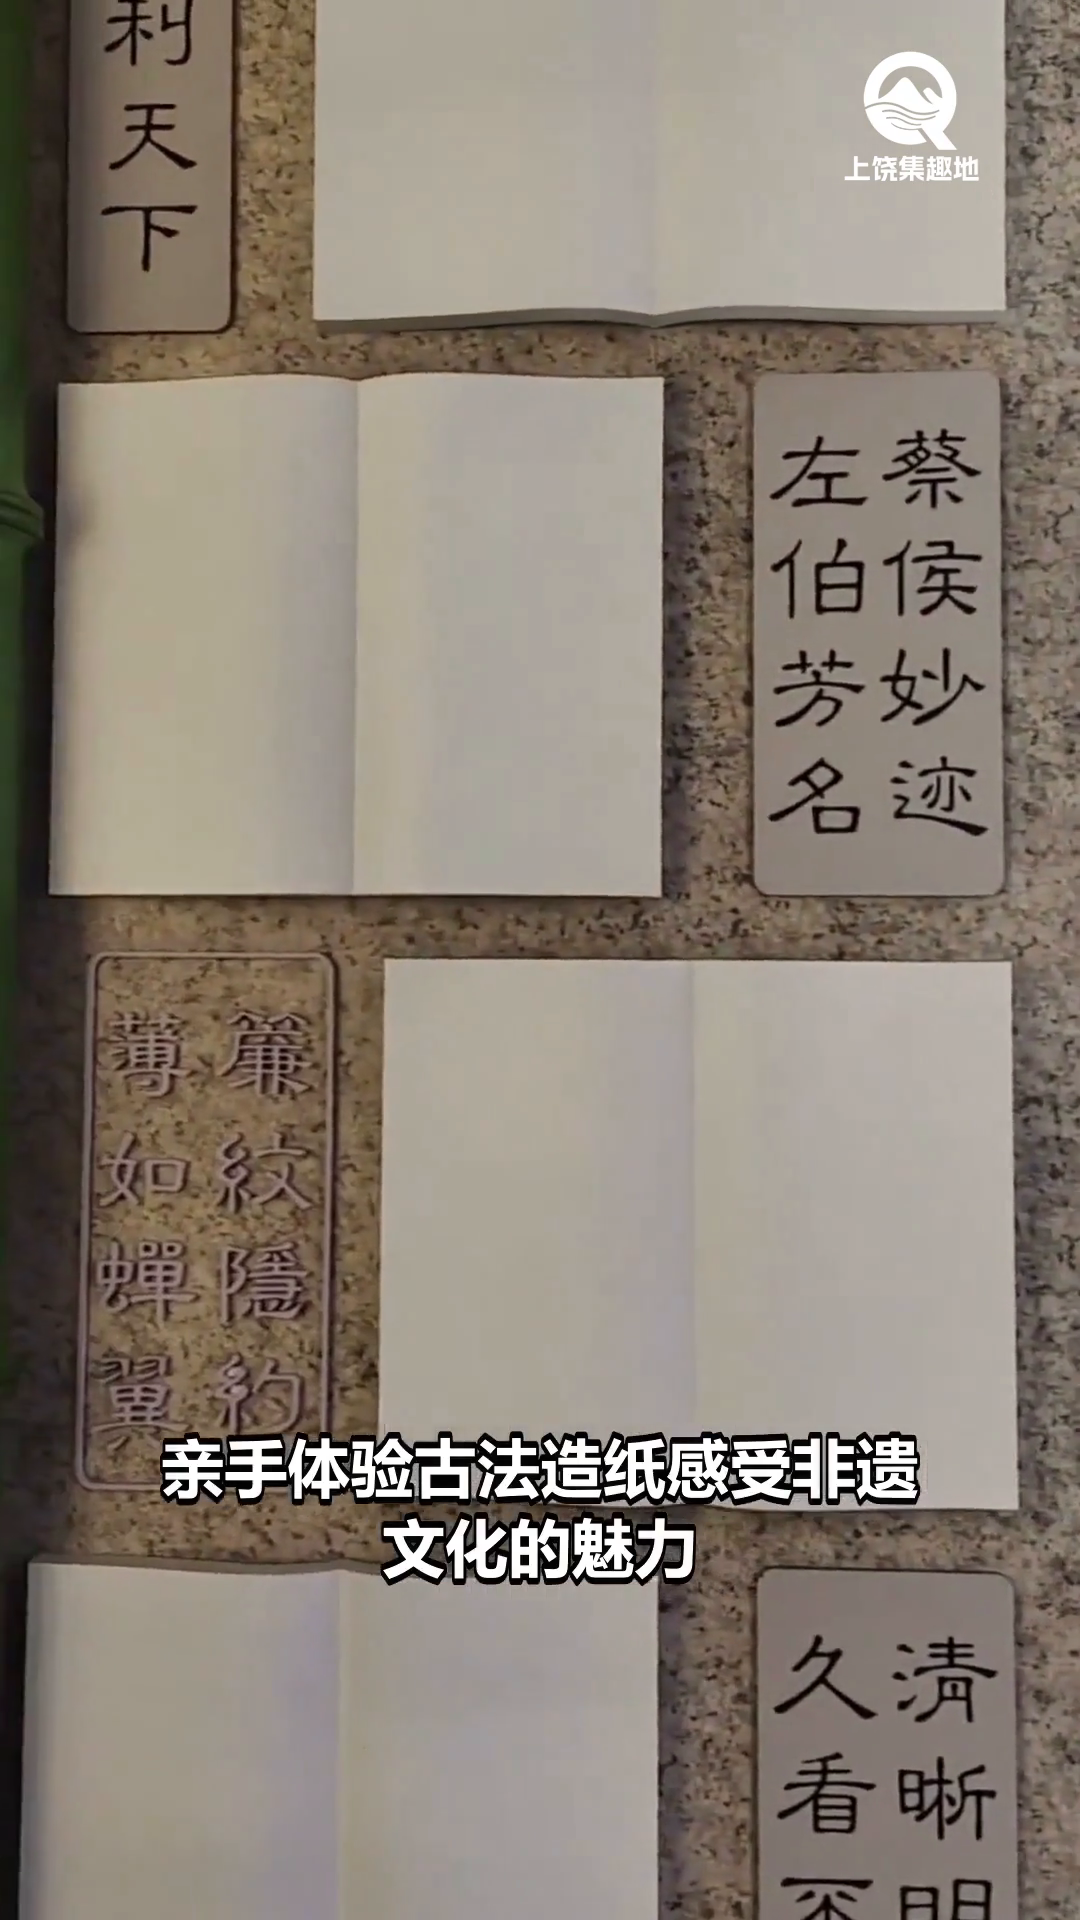 利天下
上饶集趣地
蔡侯妙迹
左伯芳名
簾紋隱約
薄如蟬翼
亲手体验古法造纸感受非遗
文化的魅力
清晰明
久看不